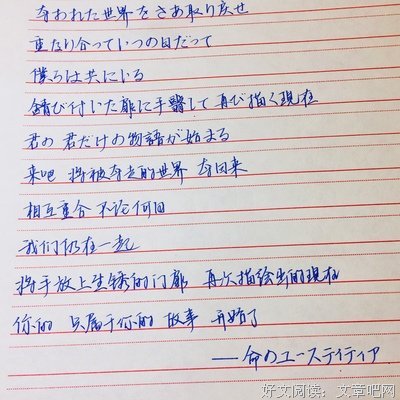 奪われた世界をさあ取り戻せ
重なり合っていつの日だって
僕らは共にいる
錆び付いた扉に手翳して再び描く現在
君の君だけの物語が始まる
来吧 将被夺走的世界 夺回来
相互重合 不论何日
我们仍在一起
将手放上生锈的门扉 再次描绘出的现在
你的 只属于你的 故事 开始了
——命のユースティティア
好文阅读：文章吧网